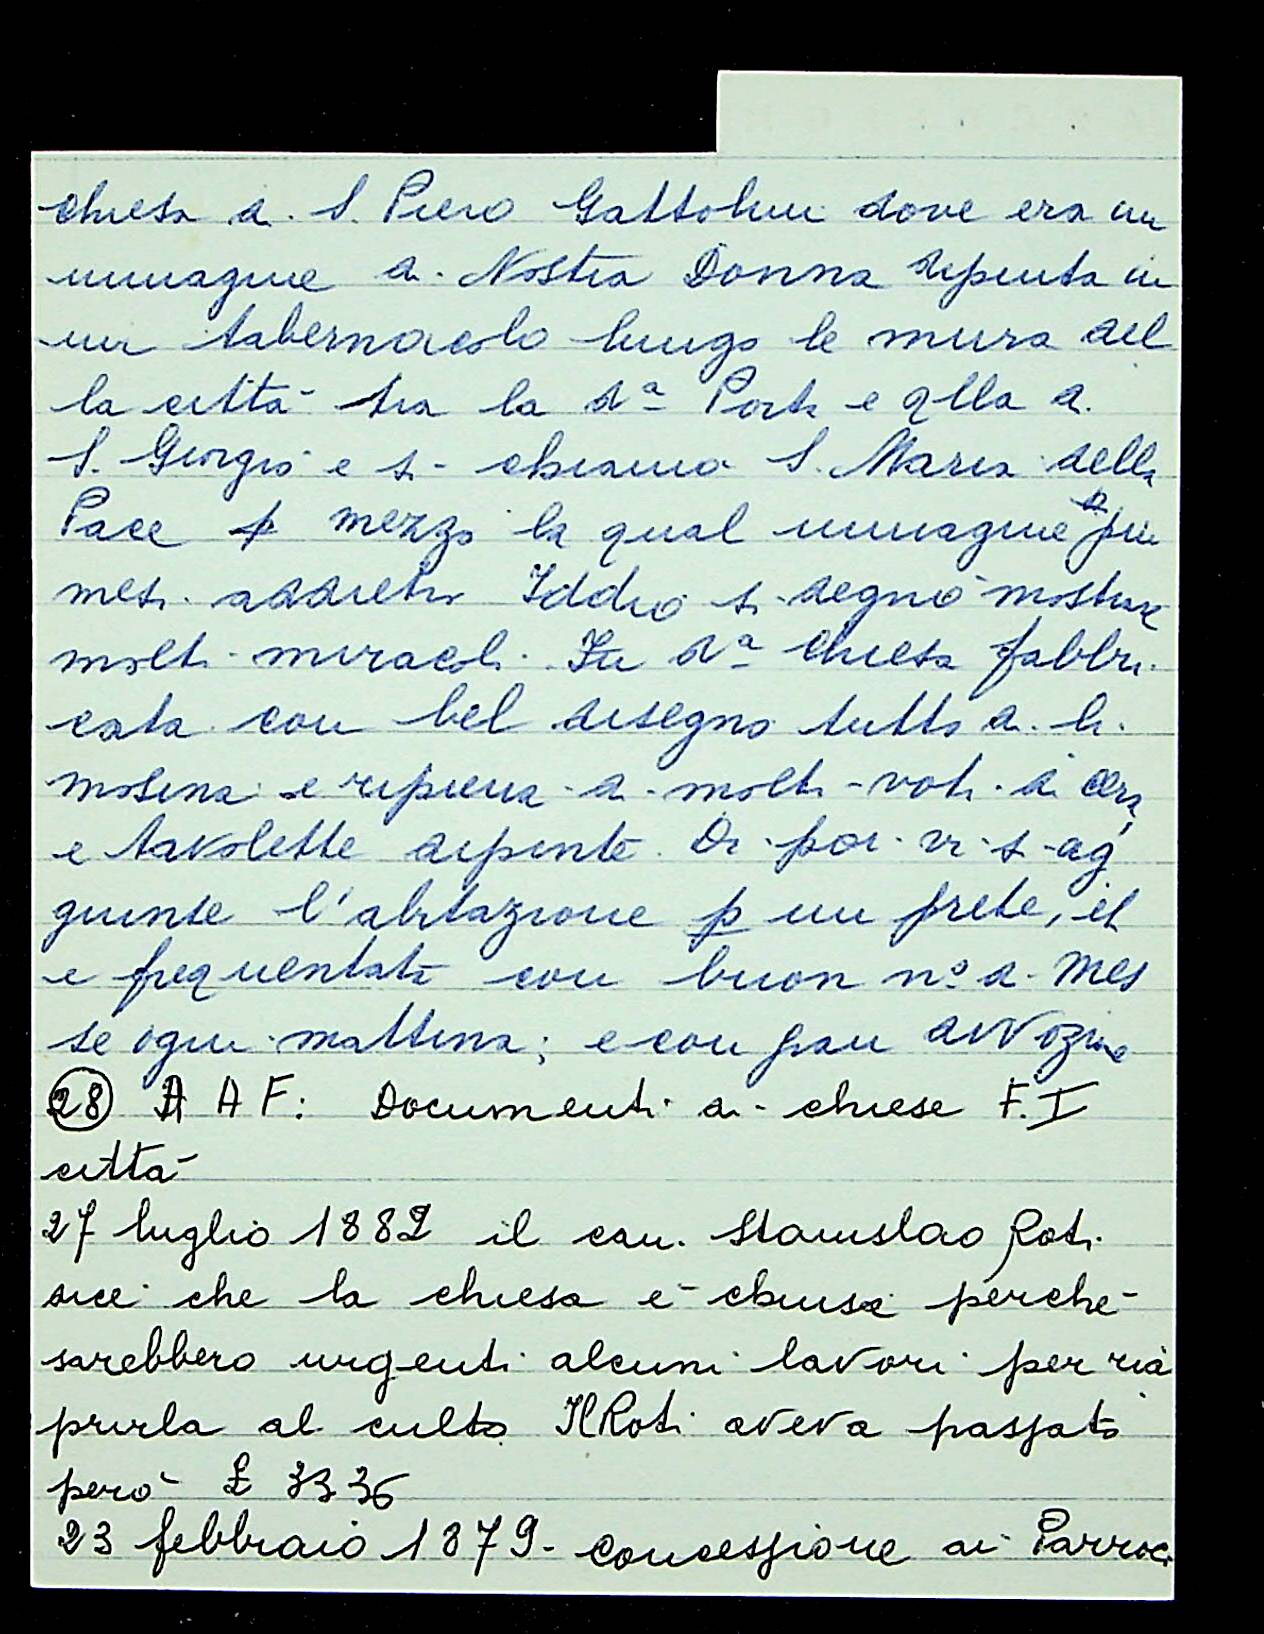 chiesa di S. Piero Gattolini dove era un
immagine di Nostra Donna dipinta in
un tabernacolo lungo le mura del
la città tra la da Porta e qlla di
S. Giorgio e si chiamò S. Maria della
Pace p mezzo la qual immagine più
mesi addietro Iddio si degnò mostrare
molti miracoli. Fu da Chiesa fabbri
cata con bel disegno tutto di li
mosina e ripiena di molti voti di cera,
e tavolette dipinte. Di poi vi si ag
giunse l'abitazione p un prete, et
e frequentata con buon no di Mes
se ogni mattina; e con gran divozine
28 A A F: Documenti di chiese F. I
città
27 luglio 1882 il can. Stanislao Roti
dice che la chiesa è chiusa perchè
sarebbero urgenti alcuni lavori per ria
prirla al culto. Il Roti aveva passato
però £ 3336
23 febbraio 1879 - concessione di Parroci